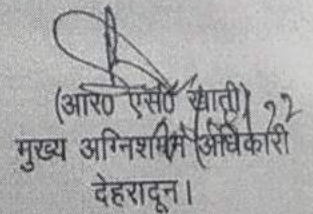 (आर० एस० खाती)
मुख्य अग्निशमन अधिकारी
देहरादून।